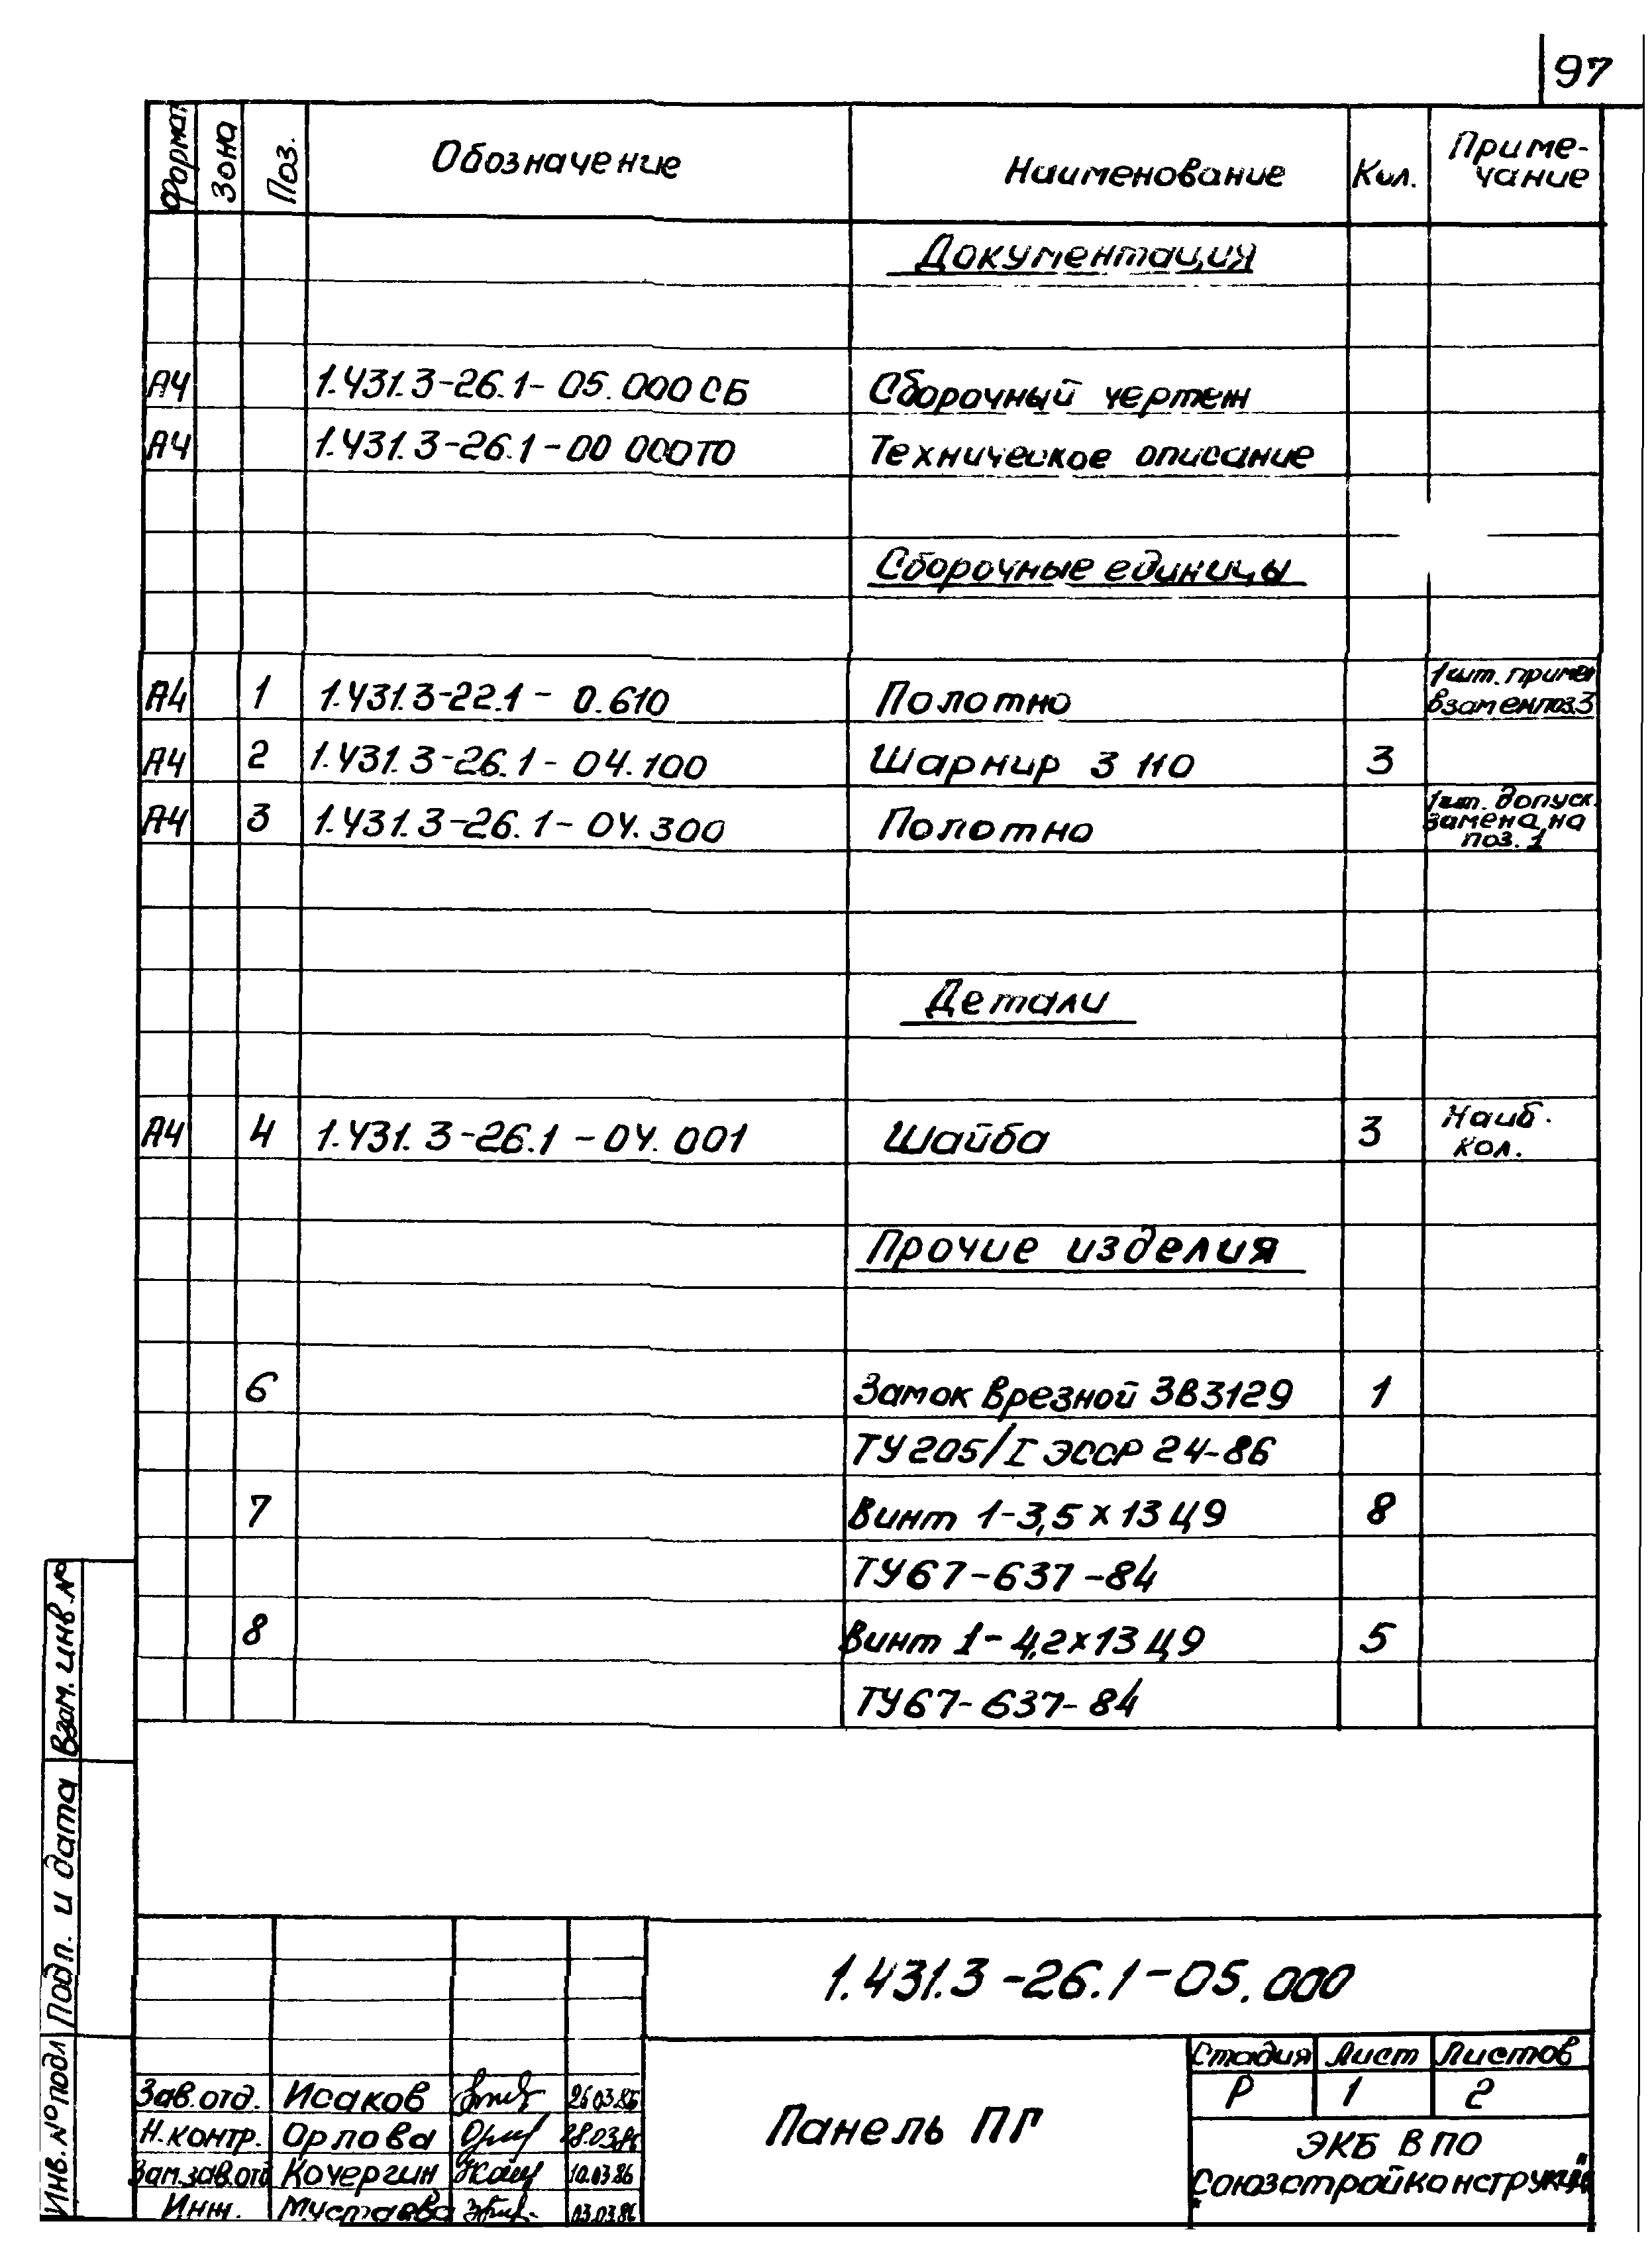 97
Формат Зона Поз. Обозначение Наименование Кол. Приме-
чание
Документация
А4 1.431.3-26.1-05.000СБ Сборочный чертеж
А4 1.431.3-26.1-00 000ТО Техническое описание
Сборочные единицы
1шт. примен
А4 1 1.431.3-22.1-0.610 Полотно взамен поз.3
А4 2 1.431.3-26.1-04.100 Шарнир 3 110 3
1шт. допуск.
А4 3 1.431.3-26.1-04.300 Полотно замена на
поз. 1
Детали
А4 4 1.431.3-26.1-04.001 Шайба 3 Наиб.
кол.
Прочие изделия
6 Замок врезной ЗВ3129 1
ТУ205/I ЭССР 24-86
7 Винт 1-3,5×13 Ц9 8
ТУ67-637-84
8 Винт 1-4,2×13 Ц9 5
ТУ67-637-84
Взам. инв. №
Подп. и дата
Инв. № подл
1.431.3-26.1-05.000
Панель ПГ
Стадия Лист Листов
Р 1 2
ЭКБ ВПО
"Союзстройконструкция"
Зав.отд. Исаков 26.03.86
Н.контр. Орлова 28.03.86
Зам.зав.отд Кочергин 10.03.86
Инж. 03.03.86